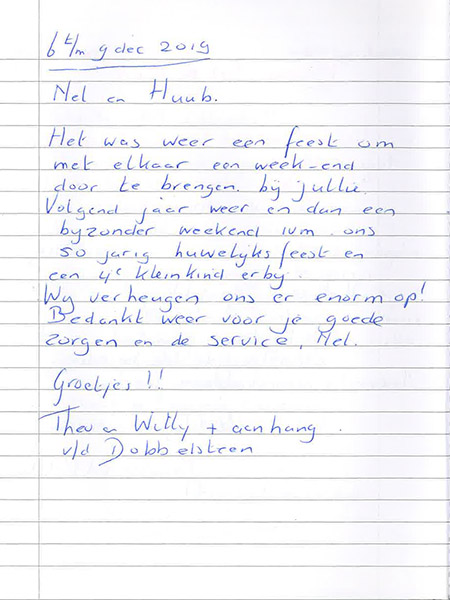 6 t/m 9 dec 2019
Nel en Huub.
Het was weer een feest om
met elkaar een week-end
door te brengen. bij jullie.
Volgend jaar weer en dan een
byzonder weekend ivm. ons
50 jarig huwelyks feest en
een 4e kleinkind erby.
Wy verheugen ons er enorm op!
Bedankt weer voor je goede
zorgen en de service, Nel.
Groetjes !!
Theo en Willy + aanhang.
v/d Dobbelsteen